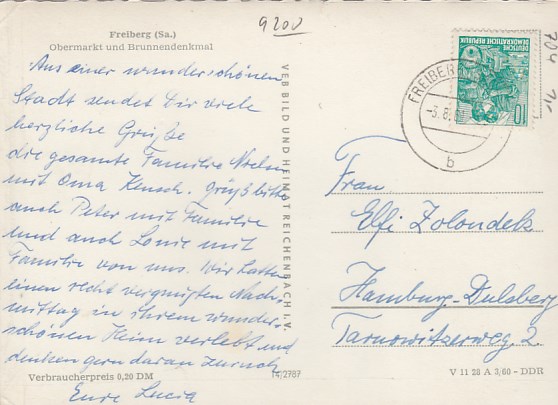 9200
Freiberg (Sa.)
Obermarkt und Brunnendenkmal
Aus einer wunderschönen
Stadt sendet Dir viele
herzliche Grüße
die gesamte Familie
mit Oma Grüß bitte
auch Peter mit Familie
und auch mit
Familie von uns. Wir hatten
einen recht vergnügten Nach-
mittag in ihrem wunder-
schönen Heim verlebt und
denken gern daran zurück
Eure Lucia
Verbraucherpreis 0,20 DM
VEB BILD UND HEIMAT REICHENBACH I. V.
14/2787
DEUTSCHE
DEMOKRATISCHE REPUBLIK
10
FREIBERG
b
Frau
Elfi Zolondek
Hamburg-Dulsberg
Tarnowitzerweg 2.
V 11 28 A 3/60 - DDR